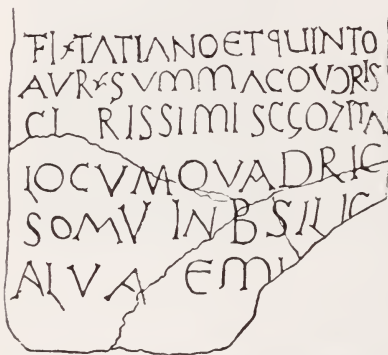 FL TATIANO ET QUINTO
AVR SVMMACO VVRIS
CL RISSIMIS
LOCVM QVADRI
SOMV IN B SILIC
ALVA EMI